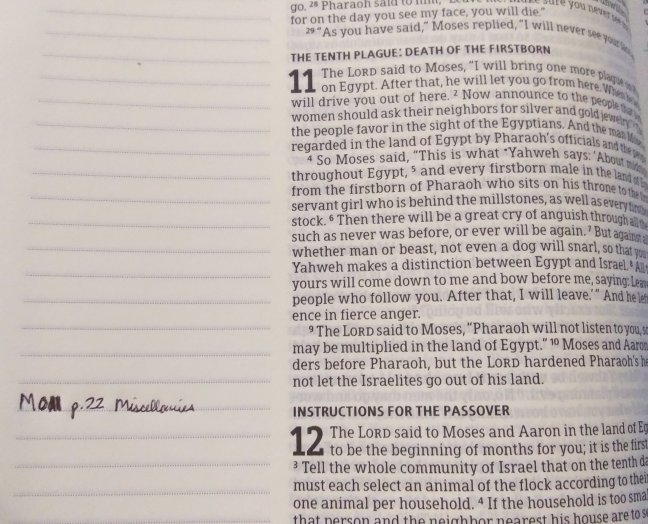 go. 28 Pharaoh said to him, you never see
for on the day you see my face, you will die."
29 "As you have said," Moses replied, "I will never see your
THE TENTH PLAGUE: DEATH OF THE FIRSTBORN
11 The LORD said to Moses, "I will bring one more plague
on Egypt. After that, he will let you go from here. When
will drive you out of here. 2 Now announce to the people that
women should ask their neighbors for silver and gold jewelry."
the people favor in the sight of the Egyptians. And the man Moses
regarded in the land of Egypt by Pharaoh's officials and the
4 So Moses said, "This is what *Yahweh says: 'About
throughout Egypt, 5 and every firstborn male in the land of
from the firstborn of Pharaoh who sits on his throne to the
servant girl who is behind the millstones, as well as every
stock. 6 Then there will be a great cry of anguish through all
such as never was before, or ever will be again. 7 But against
whether man or beast, not even a dog will snarl, so that you
Yahweh makes a distinction between Egypt and Israel. 8 All
yours will come down to me and bow before me, saying: Leave
people who follow you. After that, I will leave.'" And he left
ence in fierce anger.
9 The LORD said to Moses, "Pharaoh will not listen to you, so
may be multiplied in the land of Egypt." 10 Moses and Aaron
ders before Pharaoh, but the LORD hardened Pharaoh's
not let the Israelites go out of his land.
Mom p.22 Miscellanies
INSTRUCTIONS FOR THE PASSOVER
12 The LORD said to Moses and Aaron in the land of
to be the beginning of months for you; it is the first
3 Tell the whole community of Israel that on the tenth
must each select an animal of the flock according to their
one animal per household. 4 If the household is too
that person and the neighbor nearest his house are to